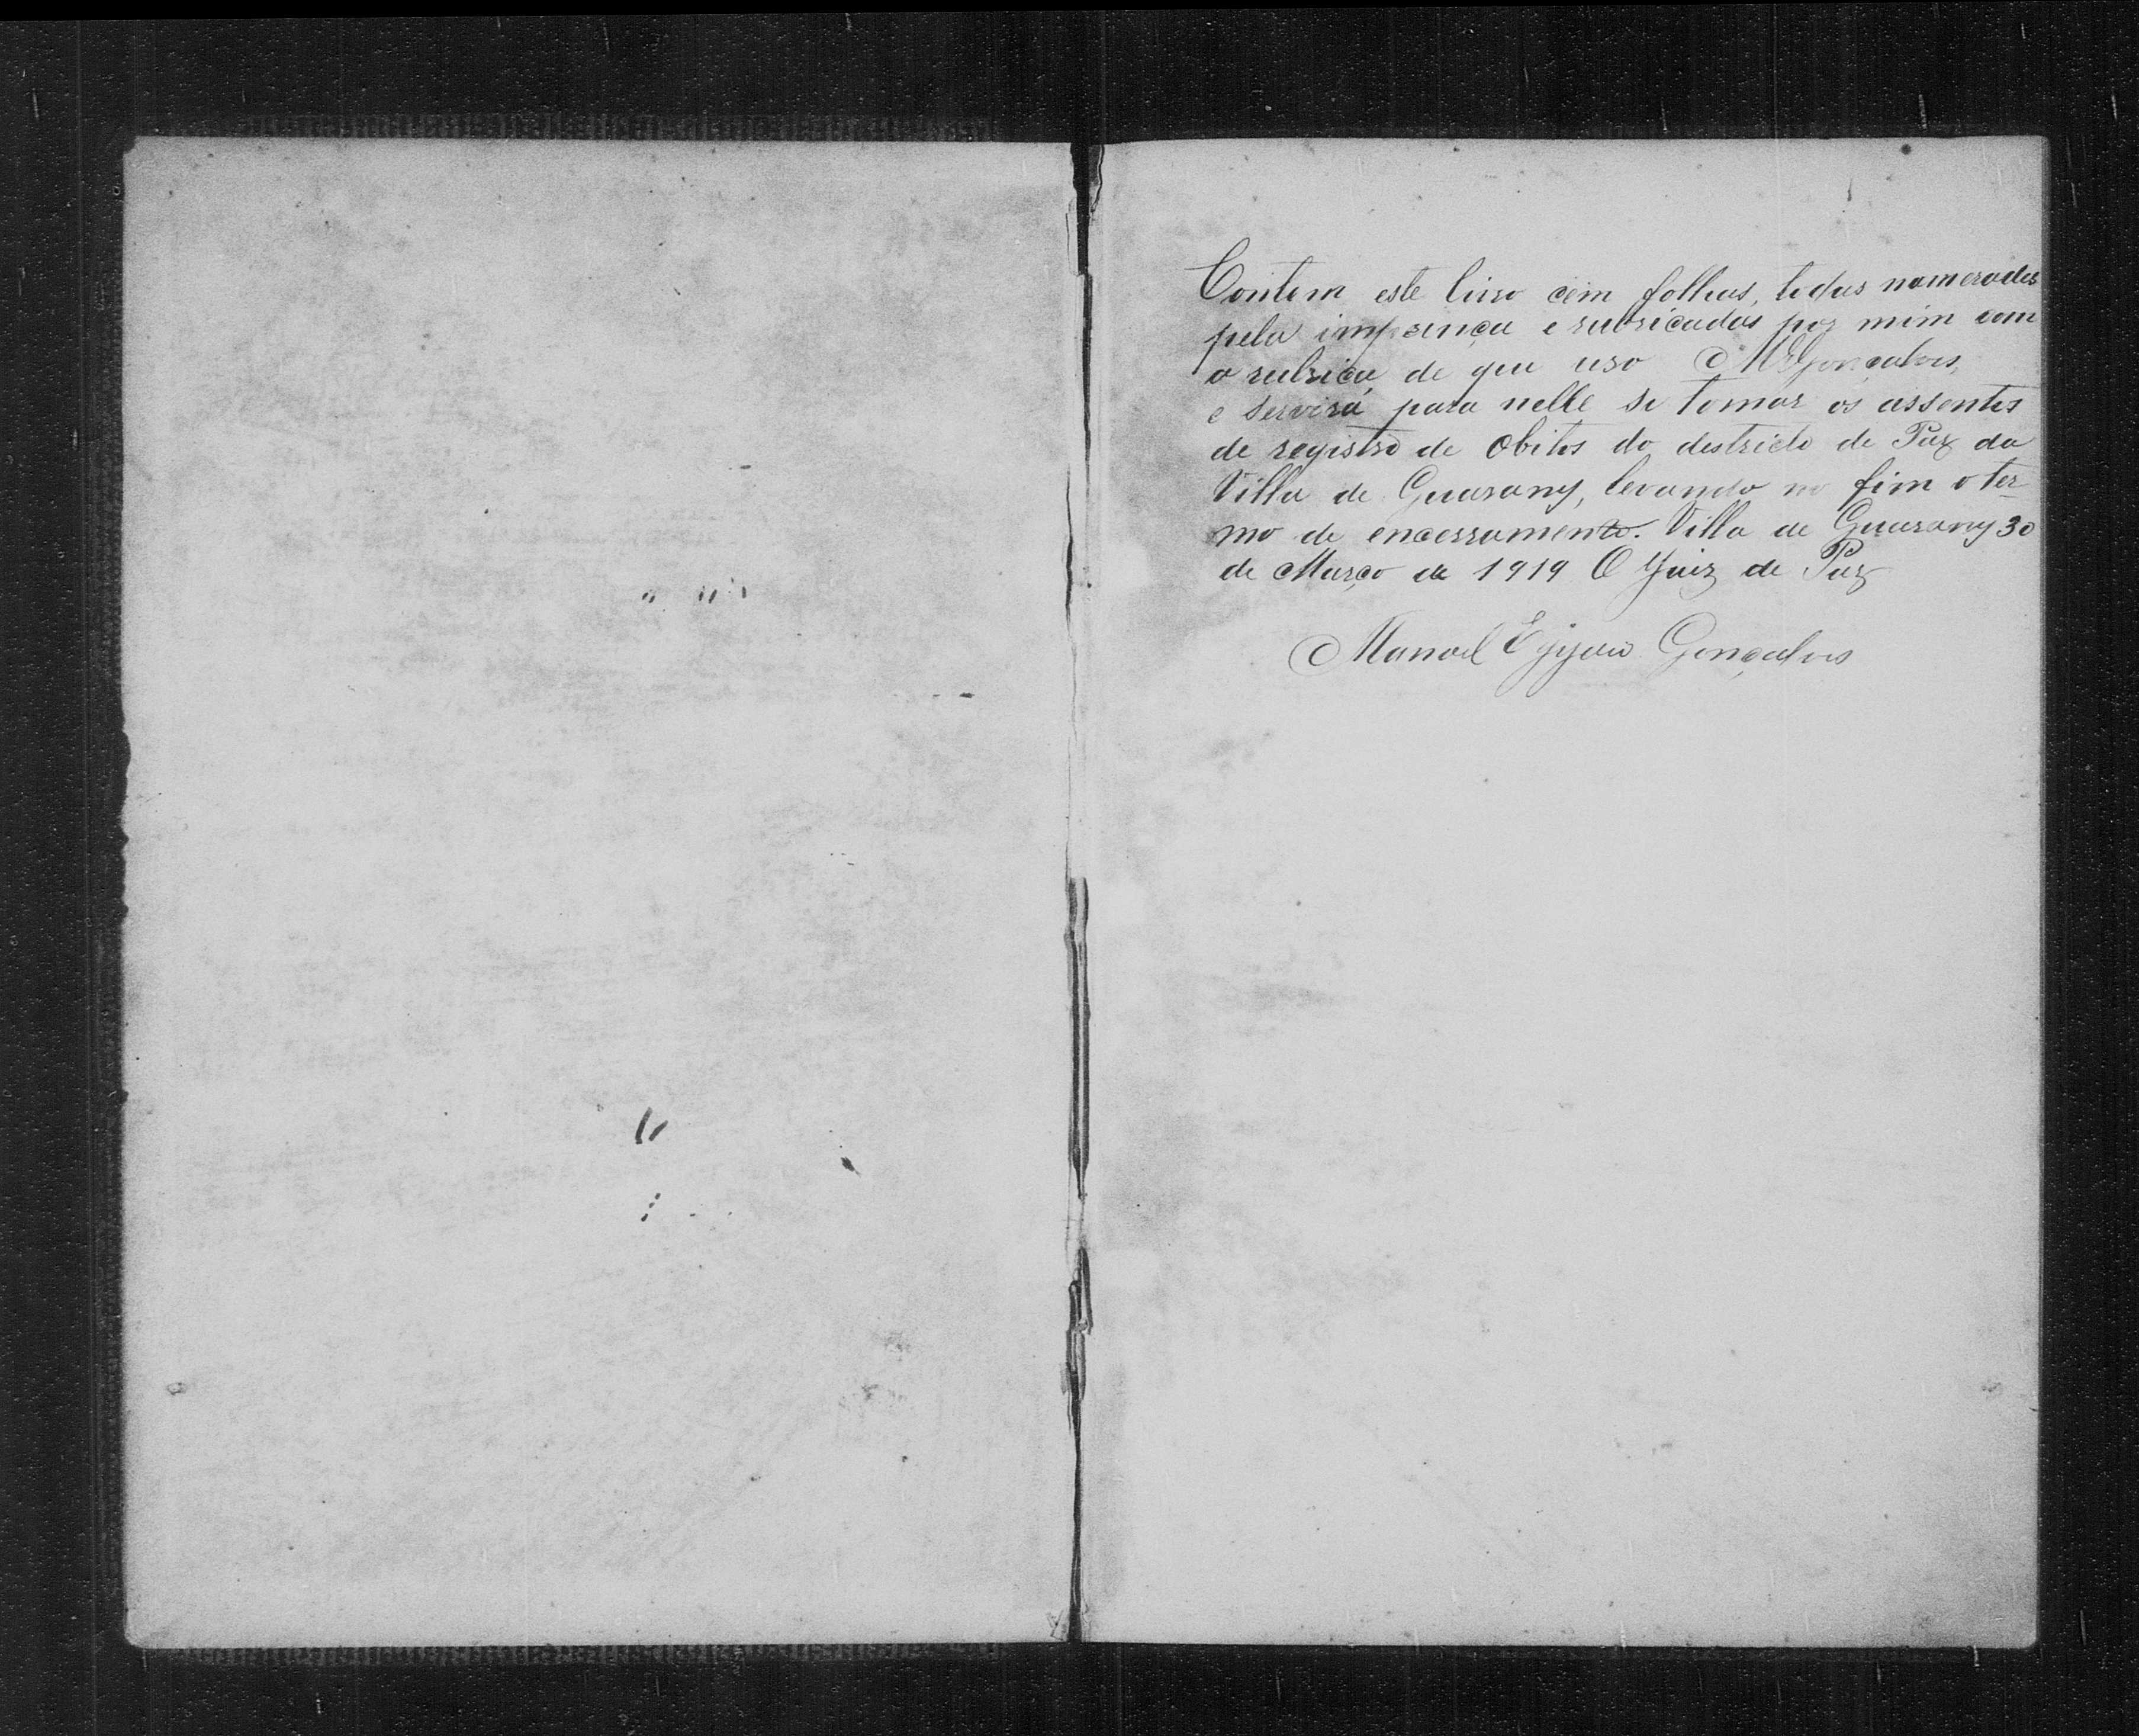 Contem este livro cem folhas, todas numeradas
pela imprença e rubricadas por mim com
a rubrica de que uso MEGonçalves,
e servirá para nelle se tomar os assentos
de registro de obitos do destricto de Paz da
Villa de Guarany, levando no fim o ter-
mo de encerramento. Villa de Guarany 30
de Março de 1919 O Juiz de Paz
Manoel Gonçalves